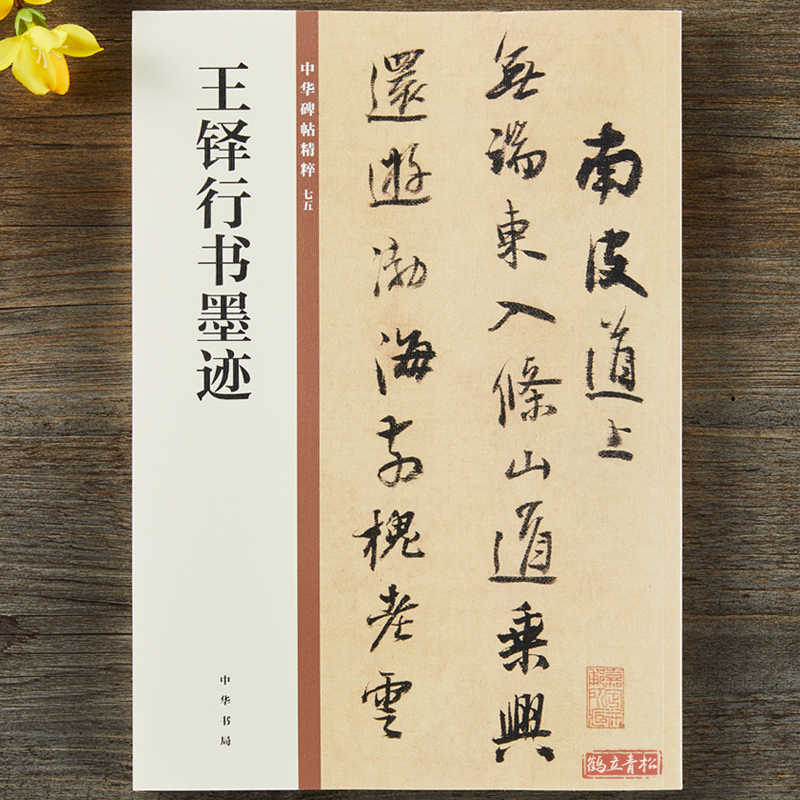 王铎行书墨迹
中华书局
中华碑帖精粹 七五
南皮道上
無端東入條山道乘興
還遊渤海 槐老雲
鹤立青松